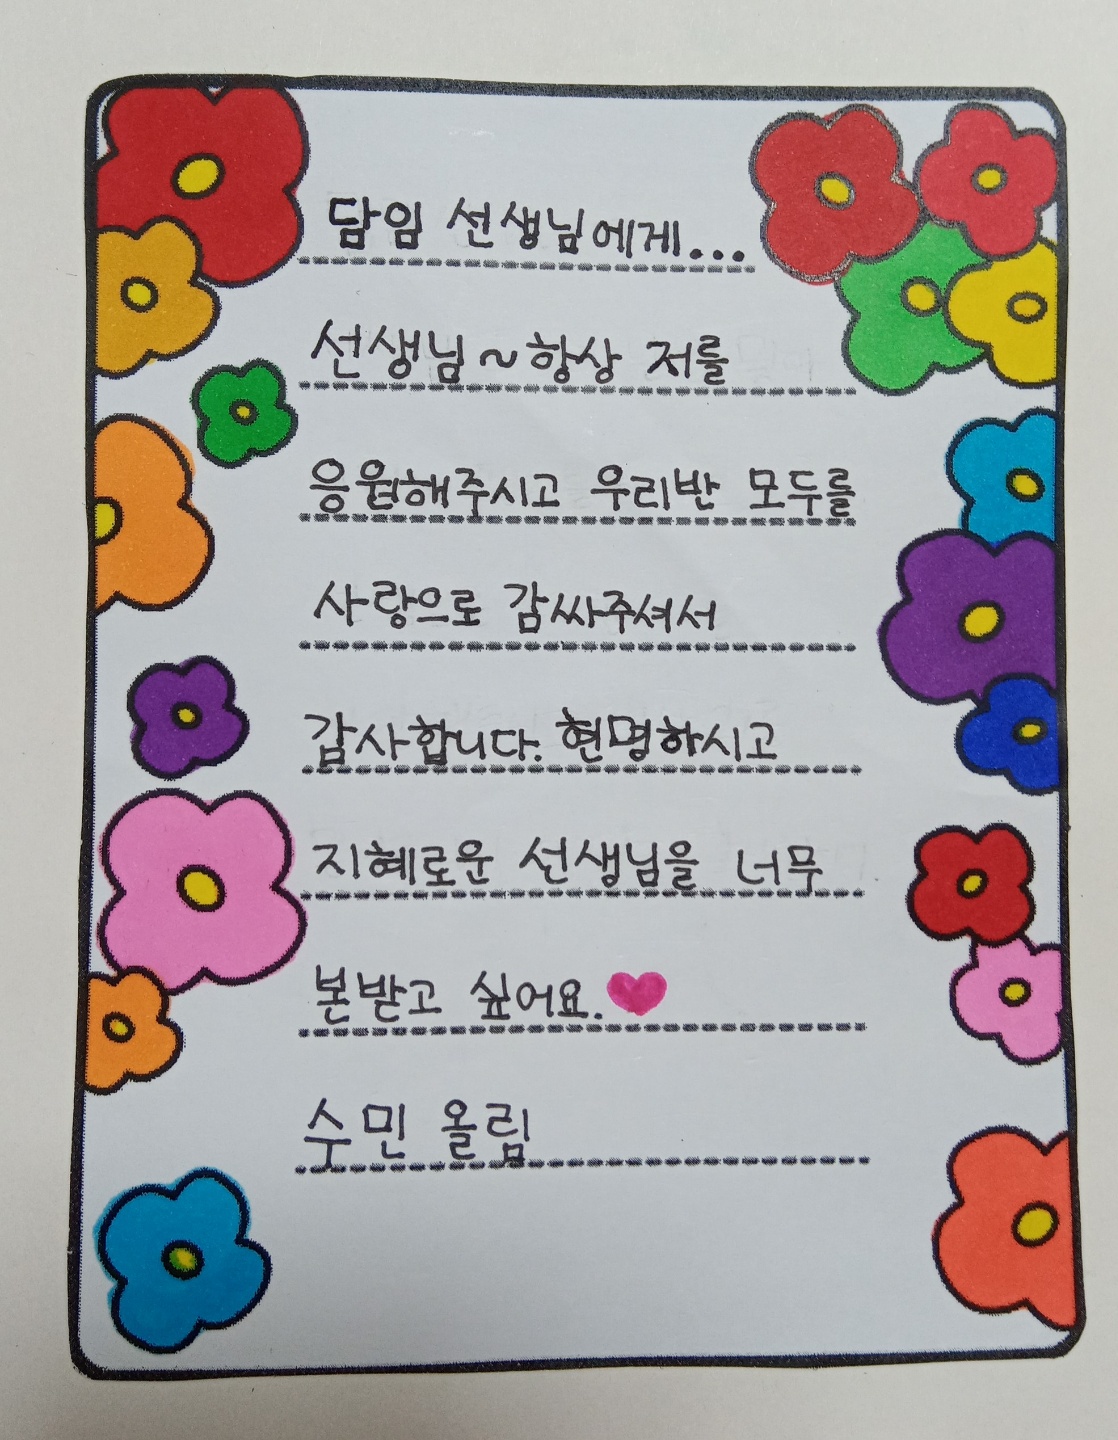 담임 선생님에게...
선생님~항상 저를
응원해주시고 우리반 모두를
사랑으로 감싸주셔서
감사합니다. 현명하시고
지혜로운 선생님을 너무
본받고 싶어요.
수민 올림